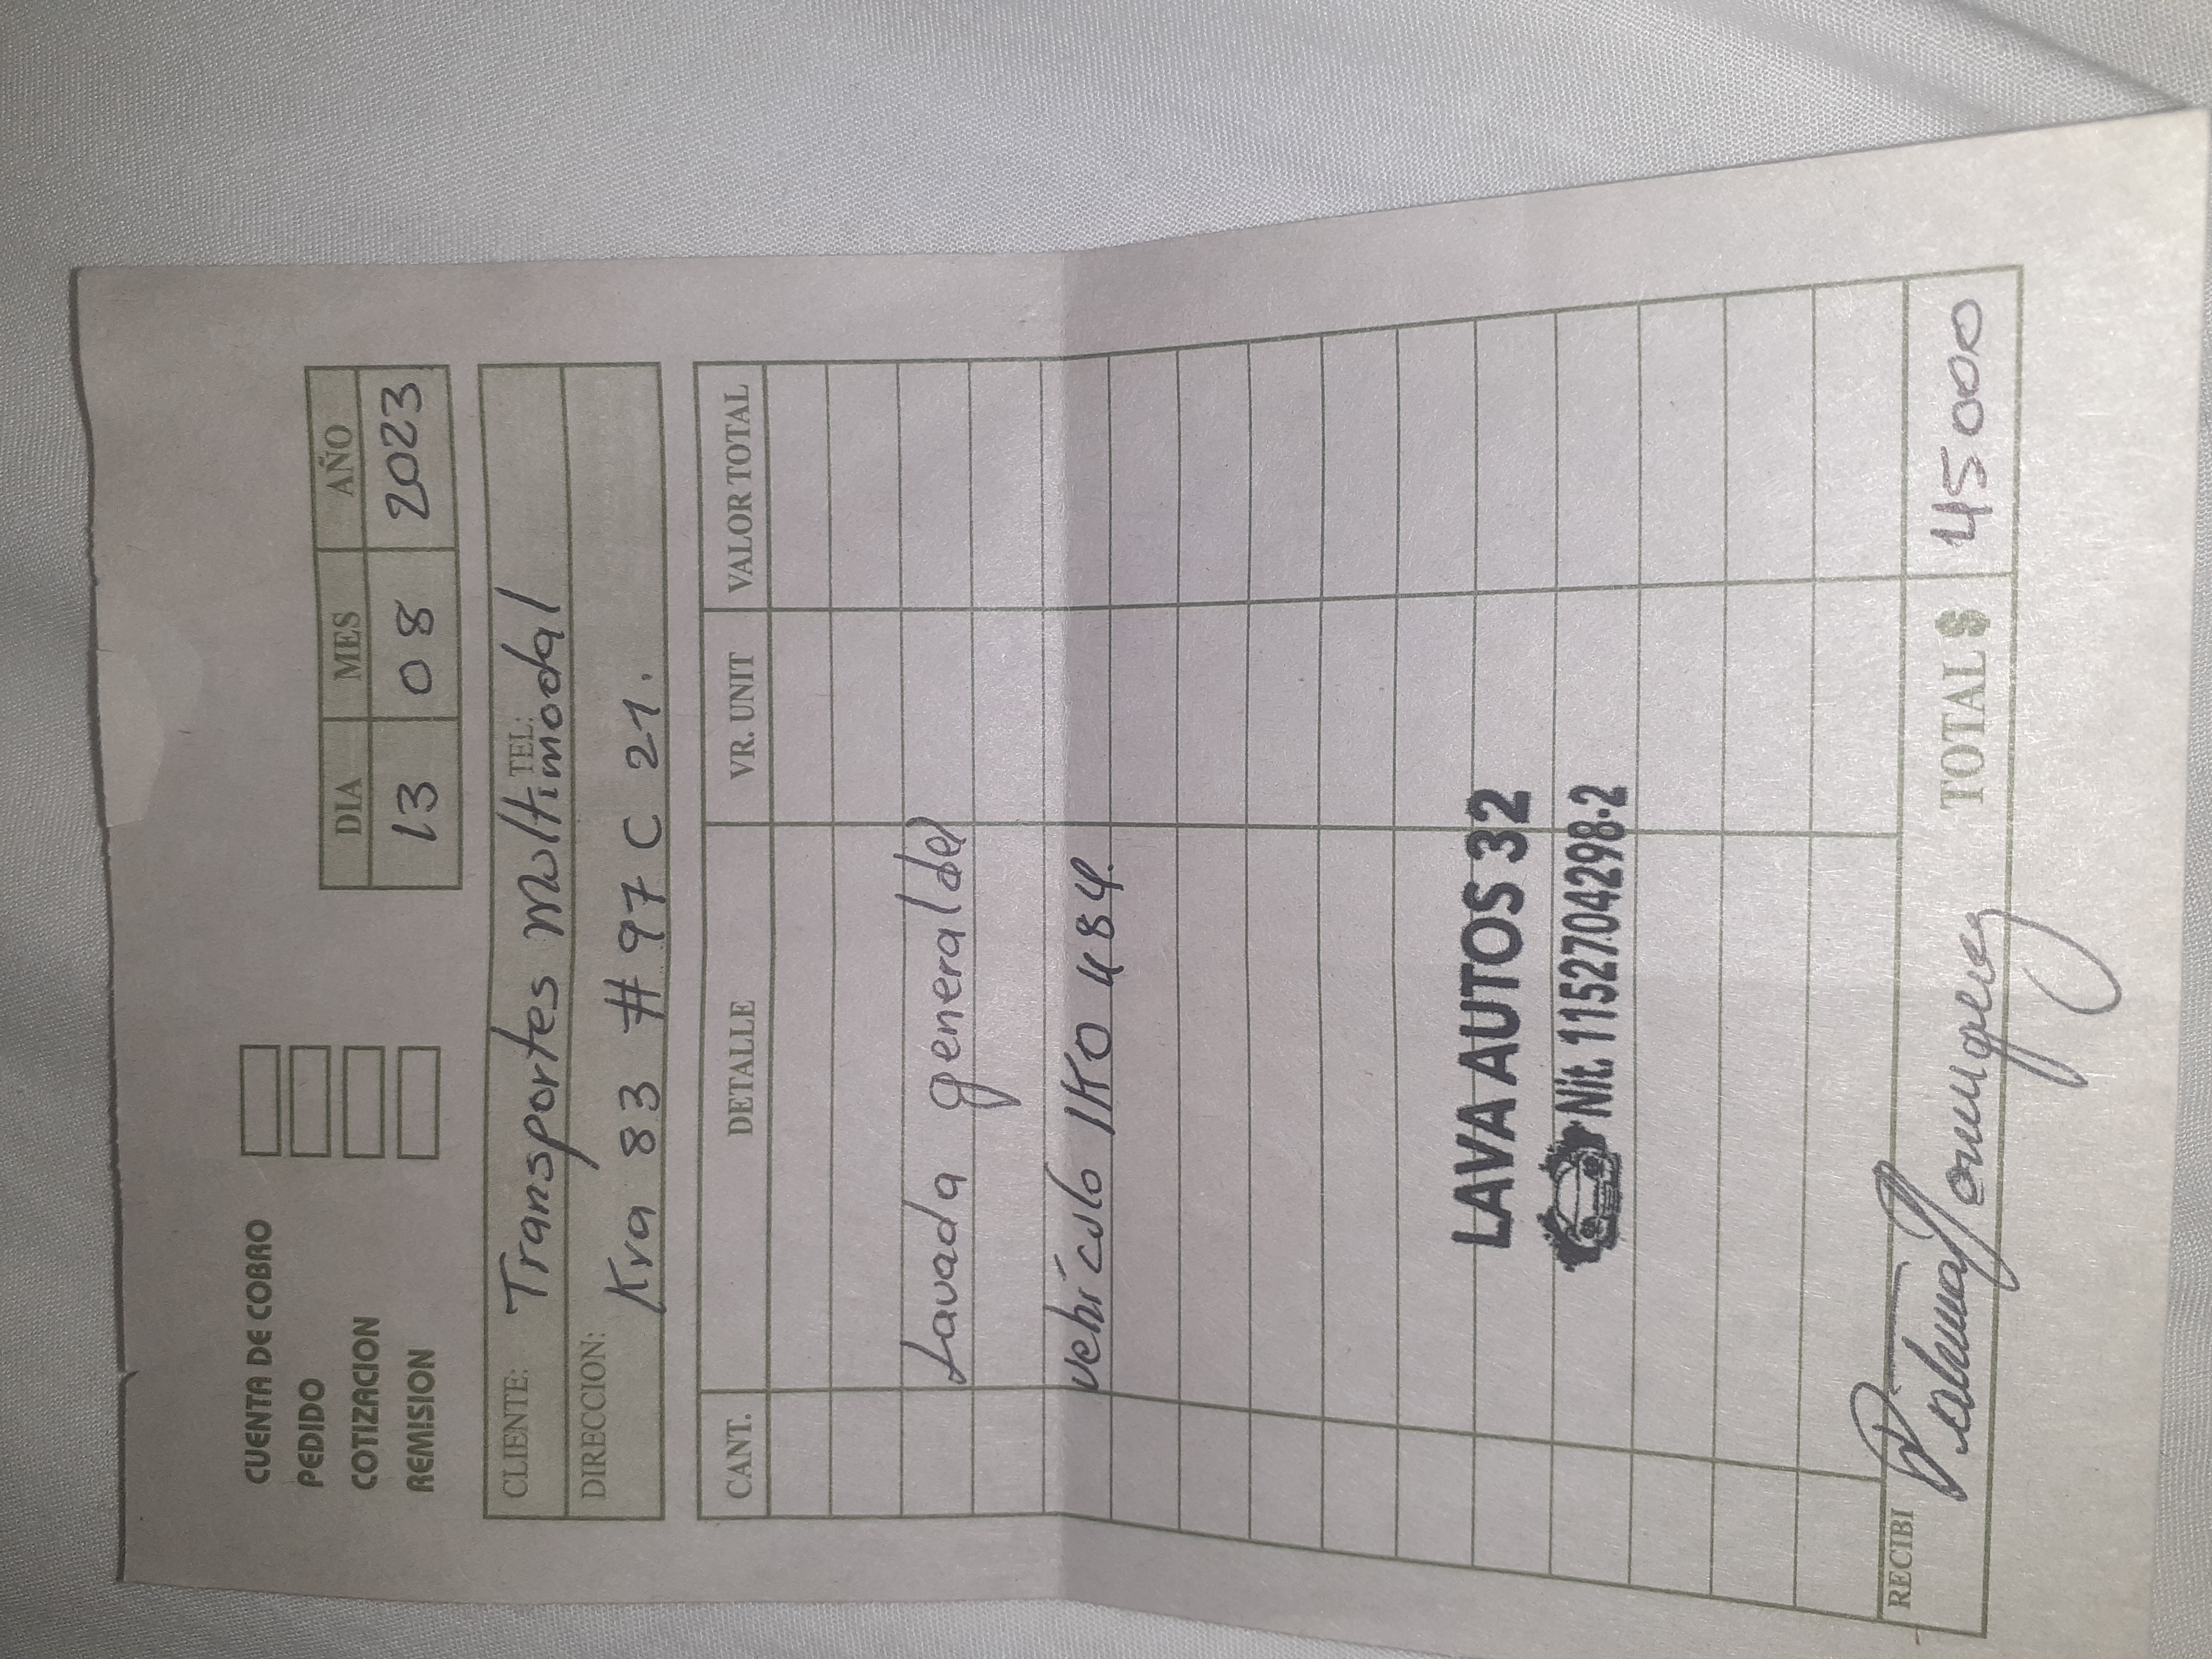 CUENTA DE COBRO
PEDIDO
COTIZACION
REMISION
DIA MES AÑO
13 08 2023
CLIENTE: Transportes Multimodal TEL:
DIRECCION: Kra 83 # 97 C 21.
CANT. DETALLE VR. UNIT VALOR TOTAL
Lavada general del
vehículo IKO 484.
LAVA AUTOS 32
Nit. 1152704298-2
RECIBI
TOTAL $ 45000